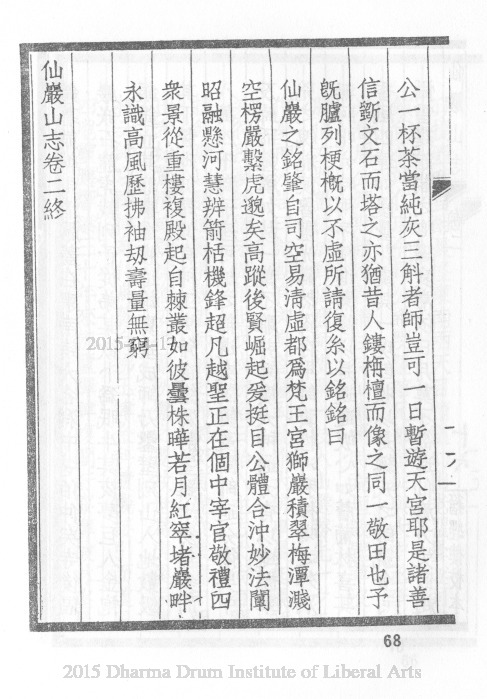 公一杯茶當純灰三斛者師豈可一日暫遊天宮耶是諸善
信斵文石而塔之亦猶昔人鏤栴檀而像之同一敬田也予
旣臚列梗槪以不虛所請復糸以銘銘曰
仙巖之銘肇自司空易淸虛都爲梵王宮獅巖積翠梅潭濺
空楞嚴繫虎邈矣高蹤後賢崛起爰挺目公體合沖妙法闡
昭融懸河慧辨箭栝機鋒超凡越聖正在個中宰官敬禮四
衆景從重樓複殿起自棘叢如彼曇株曄若月紅窣堵巖畔
永識高風歷拂袖劫壽量無窮
仙巖山志卷二終
2015-03-17
68
2015 Dharma Drum Institute of Liberal Arts